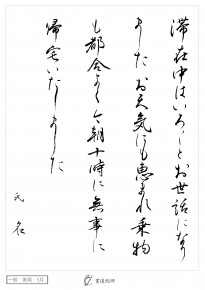 滞在中はいろいろとお世話になり
ました お天気にも恵まれ乗物
も都合よく今朝十時に無事に
帰宅いたしました
氏名
一般 実用 5月
書道教師